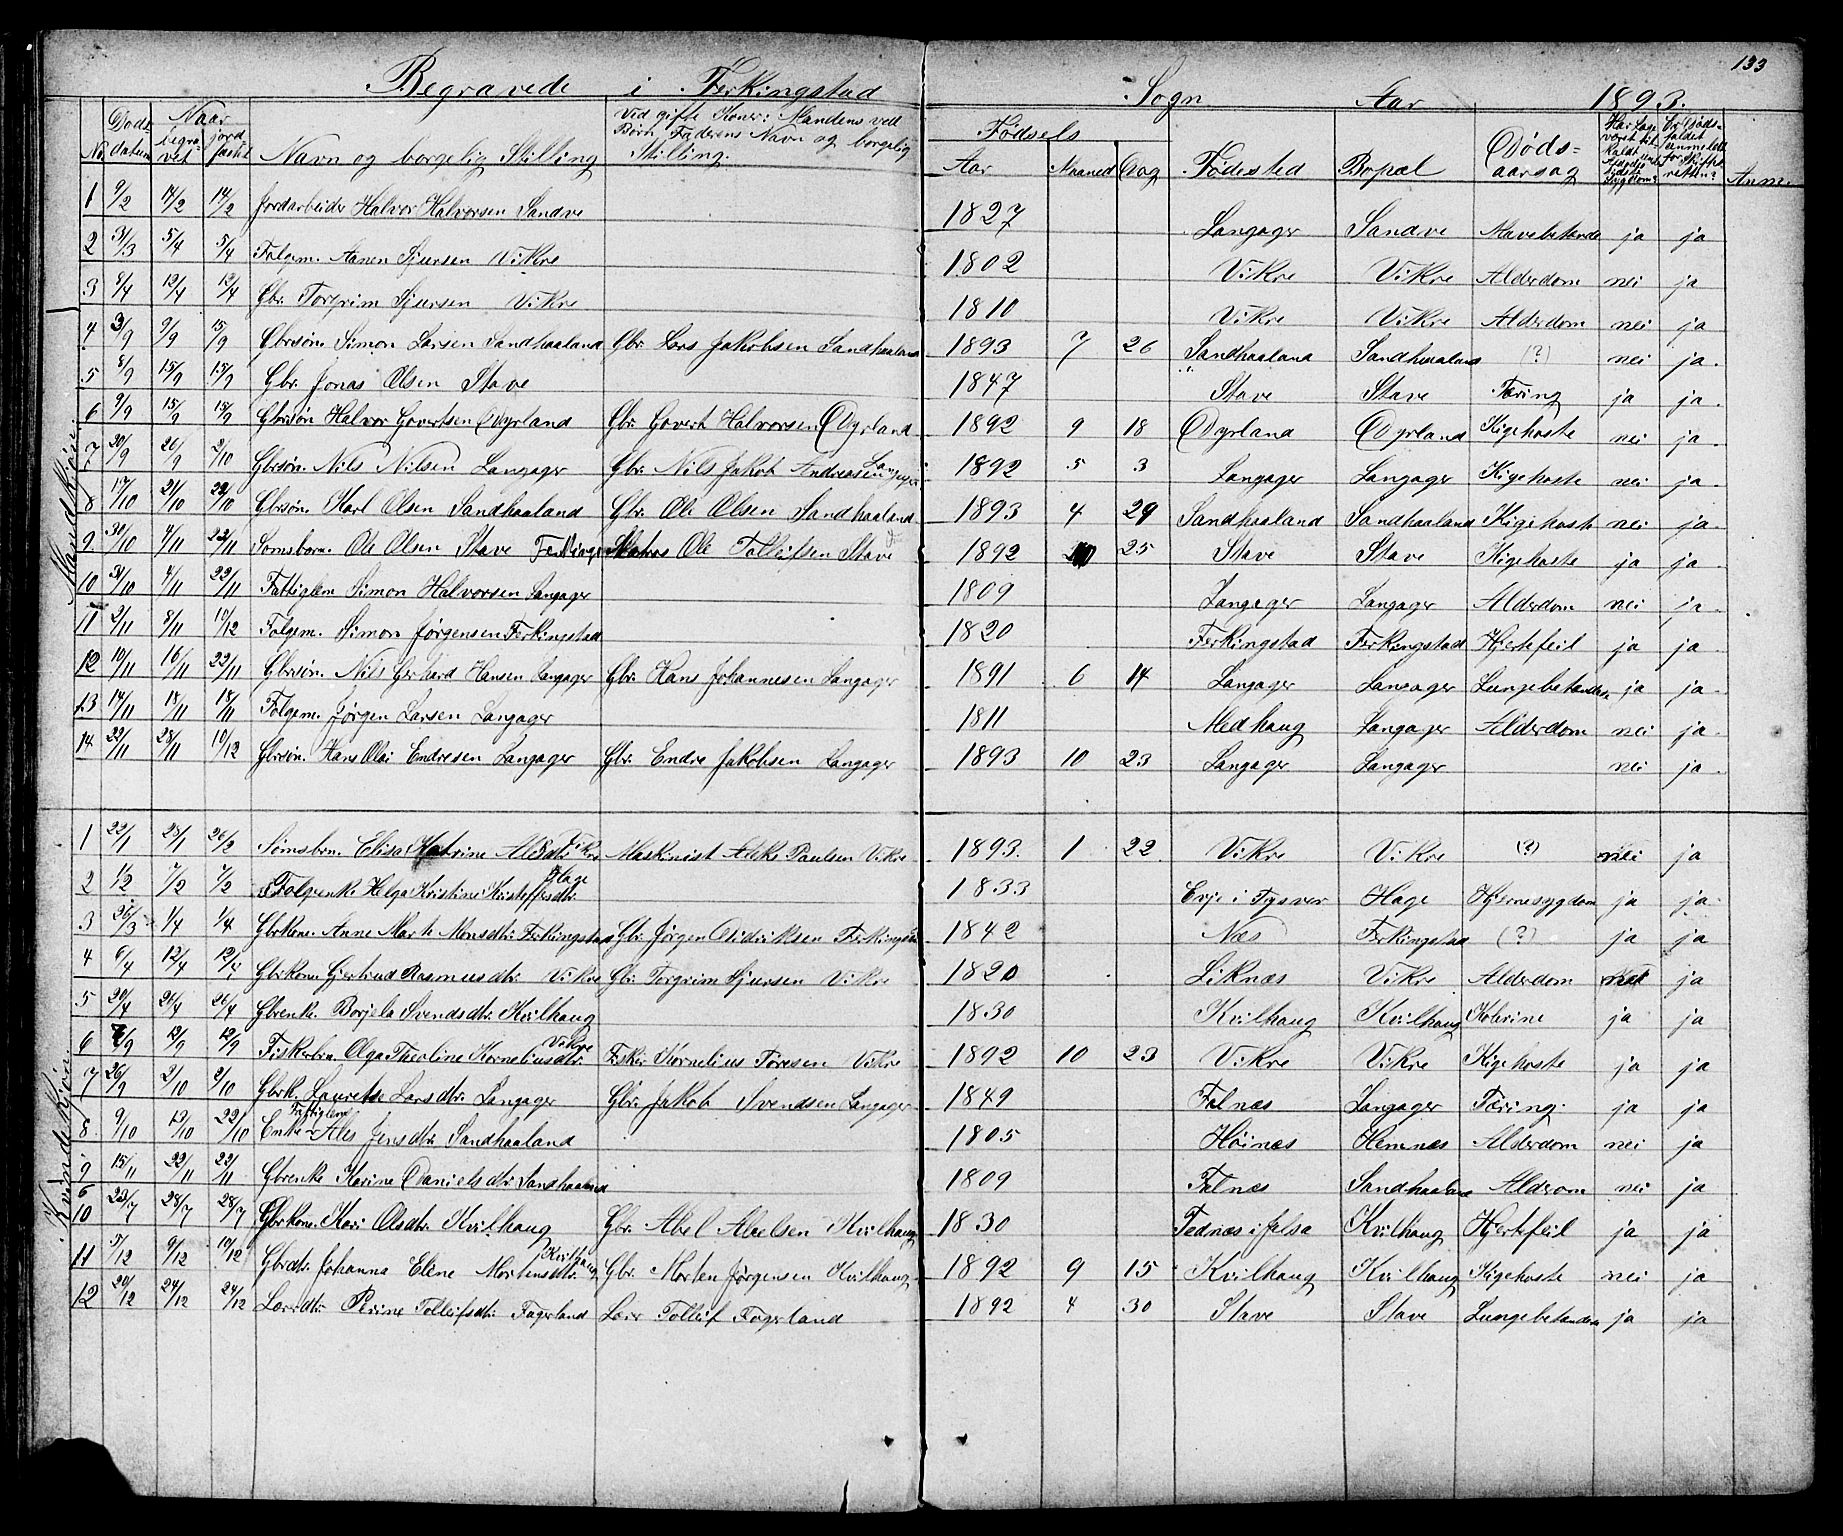 133
Begravede i Ferkingstad Sogn Aar 1893.
No Døds datum Naar begravet jordfæstet Navn og borgerlig Stilling Vid gifte Koner: Mandens ved Børn Faderens Navn og borgerlig Stilling. Fødsels Aar Maaned Dag Fødested Bopæl Dødsaarsag Anm.
Mandkjøn
1 9/2 14/2 14/2 Jordarbeider Halvor Halvorsen Sandve 1827 Langager Sandve Mavebetænde ja ja
2 31/3 5/4 5/4 Folgem. Aanen Sjursen Vikre 1802 Vikre Vikre Alderdom nei ja
3 8/4 12/4 12/4 Gbr. Torgrim Sjursen Vikre 1810 Vikre Vikre Alderdom nei ja
4 3/9 9/9 15/9 Gbrsøn. Simon Larsen Sandhaaland Gbr. Lars Jakobsen Sandhaaland 1893 7 26 Sandhaaland Sandhaaland (?) nei ja.
5 8/9 15/9 15/9 Gbr. Jonas Olsen Stave 1847 Stave Stave Tæring ja ja.
6 9/9 15/9 15/9 Gbrsøn Halvor Govertsen Dyrland Gbr. Govert Halvorsen Dyrland 1892 9 18 Dyrland Dyrland Kigehoste nei ja.
7 20/9 26/9 2/10 Gbrsøn. Nils Nilsen Langager Gbr. Nils Jakob Andreassen Langager 1892 5 3 Langager Langager Kigehoste nei ja.
8 17/10 21/10 22/10 Gbrsøn. Karl Olsen Sandhaaland Gbr. Ole Olsen Sandhaaland 1893 4 29 Sandhaaland Sandhaaland Kigehoste nei ja.
9 30/10 4/11 22/11 Ole Olsen Stave Ole Tolleifsen Stave 1892 25 Stave Stave Kigehoste ja ja.
10 31/10 4/11 22/11 Fattiglem Simon Halvorsen Langager 1809 Langager Langager Alderdom nei ja.
11 2/11 8/11 10/12 Folgem. Simon Jørgensen Ferkingstad 1820 Ferkingstad Ferkingstad Hjertfeil ja ja.
12 10/11 16/11 22/11 Gbrsøn. Nils Gerhard Hansen Langager Gbr. Hans Johannesen Langager 1891 6 14 Langager Langager Lungebetændse ja ja.
13 14/11 18/11 18/11 Folgem. Jørgen Larsen Langager 1811 Medhaug Langager Alderdom nei ja.
14 22/11 28/11 10/12 Gbrsøn. Hans Olai Endresen Langager Gbr. Endre Jakobsen Langager 1893 10 23 Langager Langager nei ja.
Kvindekjøn
1 22/1 28/1 26/2 Sømsbrn. Elisa Katrine Vikre Maskinist Aleks Paulsen Vikre 1893. 1 22 Vikre Vikre (?) nei ja
2 1/2 7/2 7/2 Folgenke Helga Kristine Kristoffersdtr. Hage 1833 Erje i Tysver Hage Hjernesygdom ja ja.
3 26/3 1/4 1/4 Gbrkone. Anne Marte Monsdtr. Ferkingstad Gbr. Jørgen Didriksen Ferkingstad 1842 Næs Ferkingstad (?) ja ja
4 6/4 12/4 12/4 Gbrkone Gjertrud Rasmusdtr. Vikre Gbr. Torgrim Sjursen Vikre 1820 Liknæs Vikre Alderdom nei ja
5 20/4 26/4 26/4 Gbrenke. Borjela Svendsdtr. Kvilhaug 1830 Kvilhaug Kvilhaug Kolerine ja ja
6 7/9 12/9 12/9 Fiskerbrn Olga Theoline Kornelinsdtr. Vikre Fisker Kornelius Tøresen Vikre 1892 10 23 Vikre Vikre Kigehoste ja ja
7 26/9 2/10 2/10 Gbrk. Lauretse Larsdtr. Langager Gbr. Jakob Svendsen Langager 1849 Falnæs Langager Tæring. ja ja
8 9/10 12/10 22/10 Enke Fattiglem Ales Jensdtr. Sandhaaland 1805 Høinæs Hemnæs Alderdom nei ja
9 15/11 22/11 22/11 Gbrenke Karine Danielsdtr. Sandhaaland 1809 Falnæs Sandhaaland Alderom nei ja
10 23/7 28/7 28/7 Gbrkone. Kari Olsdtr. Kvilhaug Gbr. Abel Abelsen Kvilhaug 1830 Tednæs i Jelsa Kvilhaug Hjertfeil ja ja
11 5/12 9/12 10/12 Gbrdtr. Johanna Elene Mortensdtr. Kvilhaug Gbr. Morten Jørgensen Kvilhaug 1892 9 15 Kvilhaug Kvilhaug Kigehoste nei ja
12 20/12 24/12 24/12 Lærdtr. Perine Tolleifsdtr. Fagerland Lær Tolleif Fagerland 1892 4 30 Stave Stave Lungebetændse ja ja